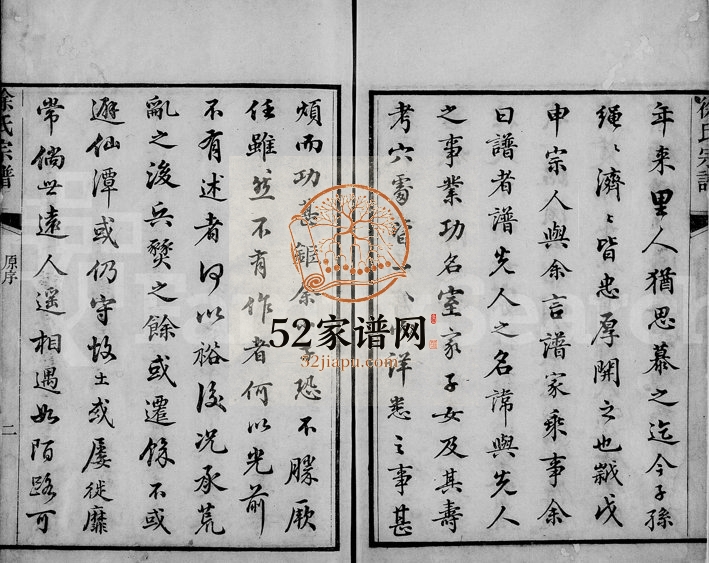 年来里人猶思慕之迄今子孫
绳〻濟〻皆忠厚開之也戡戊
申宗人與余言譜家乘事余
曰譜者譜先人之名諱與先人
之事業功名室家子女及其壽
考穴
詳悉之事甚
煩而功
恐不勝厥
任雖然不有作者何以光前
不有述者何以裕後况承荒
亂之後兵燹之餘或遷餘不或
避仙潭或仍守故土或屡徙靡
常倘世遠人遥相遇如陌路可
徐氏宗譜
原序
二
氏宗譜
52家谱网
52jiapu.com